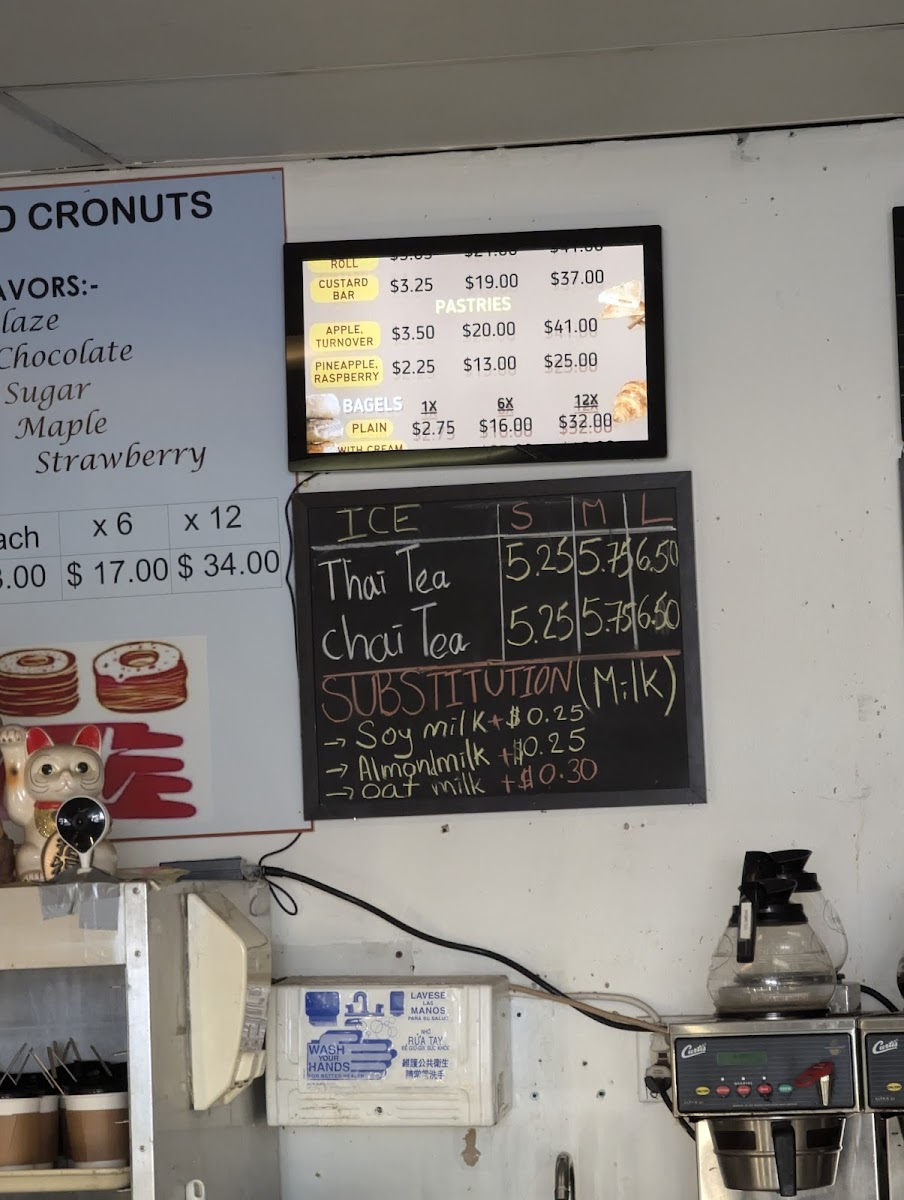 D CRONUTS
AVORS:-
laze
Chocolate
Sugar
Maple
Strawberry
ach x 6 x 12
3.00 $ 17.00 $ 34.00
ROLL
CUSTARD BAR $3.25 $19.00 $37.00
PASTRIES
APPLE, TURNOVER $3.50 $20.00 $41.00
PINEAPPLE, RASPBERRY $2.25 $13.00 $25.00
BAGELS 1X 6X 12X
PLAIN $2.75 $16.00 $32.00
WITH CREAM
ICE S M L
Thai Tea 5.25 5.75 6.50
Chai Tea 5.25 5.75 6.50
SUBSTITUTION (Milk)
→ Soy milk + $0.25
→ Almondmilk + $0.25
→ oat milk + $0.30
LAVESE
LAS
MANOS
PARA SU SALUD
NHỚ
RỬA TAY
ĐỂ GIỮ GÌN SỨC KHỎE
WASH
YOUR
HANDS
FOR BETTER HEALTH
維護公共衛生
請常常洗手
Curtis
Curtis